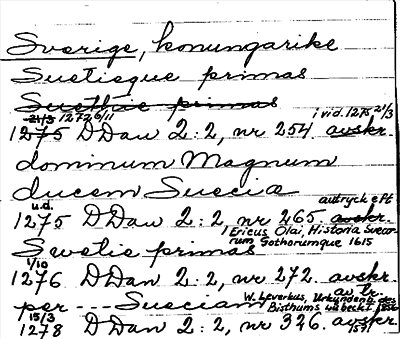 Sverige, konungarike
Suetieque primas
Suethie primas
21/3 1272 6/11 i vid. 1275 21/3
1275 DDan 2:2, nr 254 avskr.
dominum Magnum
ducem Suecia
u.d. avtryck eft
1275 DDan 2:2, nr 265 avskr.
Ericus Olai, Historia Svear-
Swetie primas rum Gothorumque 1615
1/10
1276 DDan 2:2, nr 272 avskr.
av tr.
per --- Sueciam W. Leverkus, Urkundenb. des
15/3 Bisthums Lübeck I
1278 DDan 2:2, nr 326 avskr.